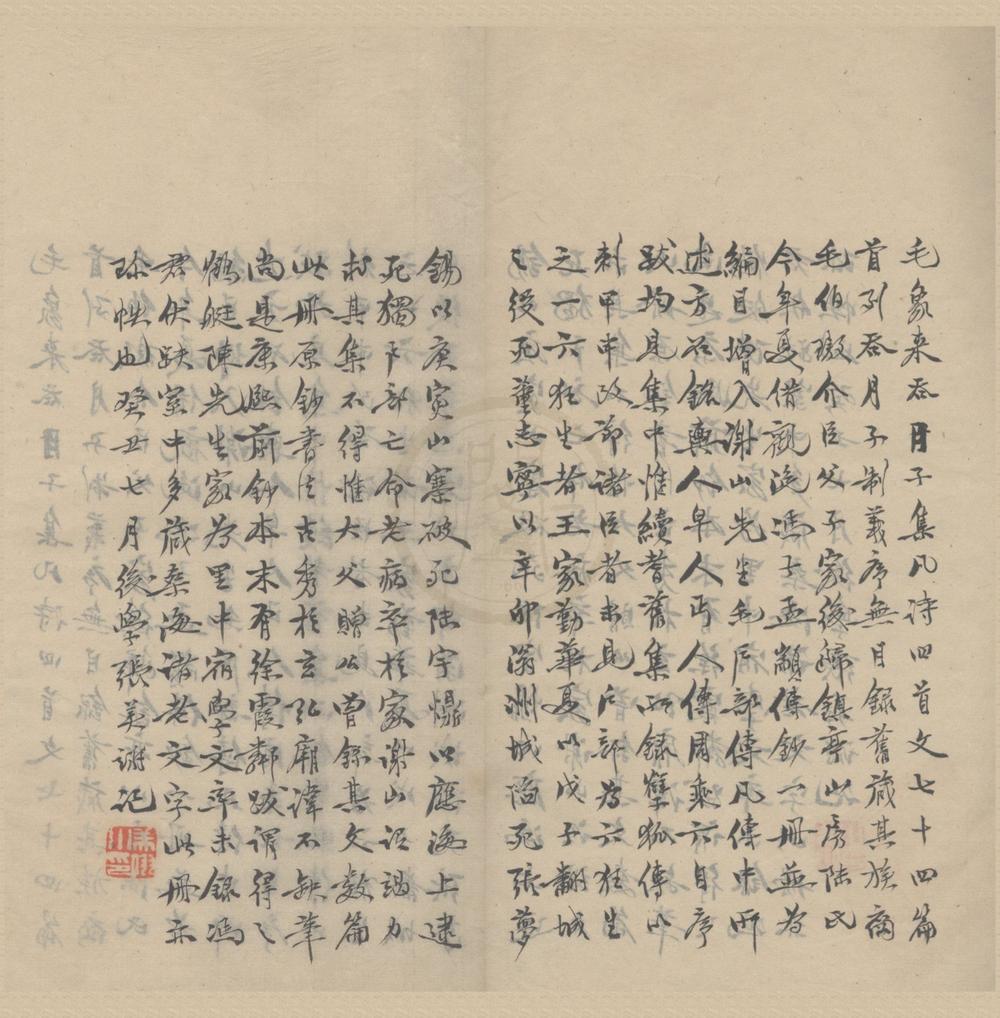 毛象来吞月子集凡诗四首文七十四篇
首列吞月子制義序無目録舊藏其族裔
毛伯㼆介臣父子家後歸鎮亭山房陸氏
今年夏借觀浼馮士孟顓傳鈔一冊並為
編目增入謝山先生毛户部傳凡傳中所
述方石銘輿人皁人丐人傳周乘六自序
跋均見集中惟續耆舊集所録雙狐傳以
刺甲申改節諸臣者未見户部為六狂生
之一六狂生者王家勤華夏以戊子翻城
之役死董志寧以辛卯滃洲城陷死張夢
錫以庚寅山寨破死陆宇𤏡以應海上逮
死獨户部亡命老病卒於家謝山証遏力
求其集不得惟大父贈公曾録其文数篇
此冊原鈔書法古秀於玄弘廟諱不缺筆
尚是康熙前鈔本末有徐霞鄰跋謂得之
㾾艇陳先生家為里中宿學文卒未録馮
君伏跗室中多蔵桑海诸老文字此冊亦
珎帙也癸丑七月後學張美翊记